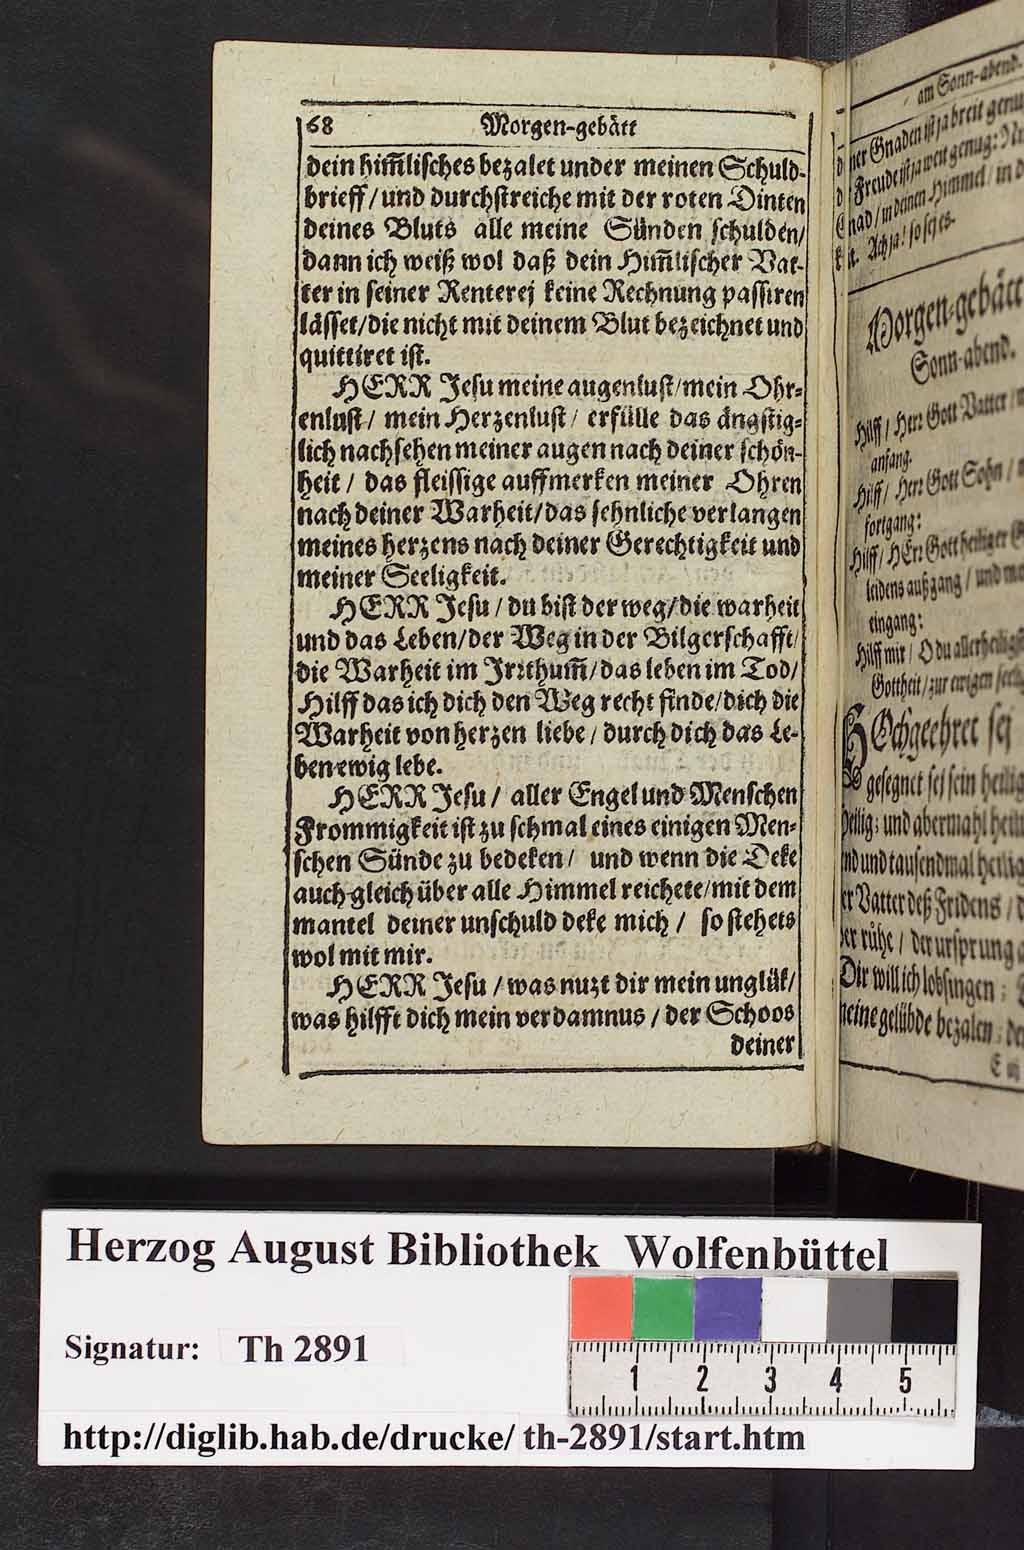 68 Morgen-gebätt
dein him̃lisches bezalet under meinen Schuld-
brieff / und durchstreiche mit der roten Dinten
deines Bluts alle meine Sünden schulden/
dann ich weiß wol daß dein Him̃lischer Vat-
ter in seiner Renterej keine Rechnung passiren
lässet/die nicht mit deinem Blut bezeichnet und
quittiret ist.
HERR Jesu meine augenlust/mein Ohr-
enlust / mein Herzenlust / erfülle das ängstig-
lich nachsehen meiner augen nach deiner schön-
heit / das fleissige auffmerken meiner Ohren
nach deiner Warheit/das sehnliche verlangen
meines herzens nach deiner Gerechtigkeit und
meiner Seeligkeit.
HERR Jesu / du bist der weg/die warheit
und das Leben/der Weg in der Bilgerschafft/
die Warheit im Irꝛthum̃/das leben im Tod/
Hilff das ich dich den Weg recht finde/dich die
Warheit von herzen liebe / durch dich das Le-
ben ewig lebe.
HERR Jesu / aller Engel und Menschen
Frommigkeit ist zu schmal eines einigen Men-
schen Sünde zu bedeken / und wenn die Deke
auch gleich über alle Himmel reichete/mit dem
mantel deiner unschuld deke mich / so stehets
wol mit mir.
HERR Jesu / was nuzt dir mein unglük/
was hilfft dich mein verdamnus / der Schoos
deiner
am Sonn-abend.
ner Gnaden ist ja breit genu
Freude ist ja weit genug: Nu
Gnad / in deinen Himmel / in d
Ach ja! so sej es.
Morgen-gebätt
Sonn-abend.
Hilff / Herꝛ Gott Vatter /
anfang.
Hilff / Herꝛ Gott Sohn /
fortgang:
Hilff / HErꝛ Gott heiliger G
leidens außgang / und me
eingang:
Hilff mir / O du allerheiligst
Gottheit / zur ewigen seelig
HOchgeehret sej
gesegnet sej sein heilig
heilig; und abermahl heilig
nd und tausendmal heilig
er Vatter deß Fridens / d
der růhe / der ursprung
Dir will ich lobsingen ;
meine gelübde bezalen ; de
E iij
Herzog August Bibliothek Wolfenbüttel
Signatur: Th 2891
1 2 3 4 5
http://diglib.hab.de/drucke/ th-2891/start.htm